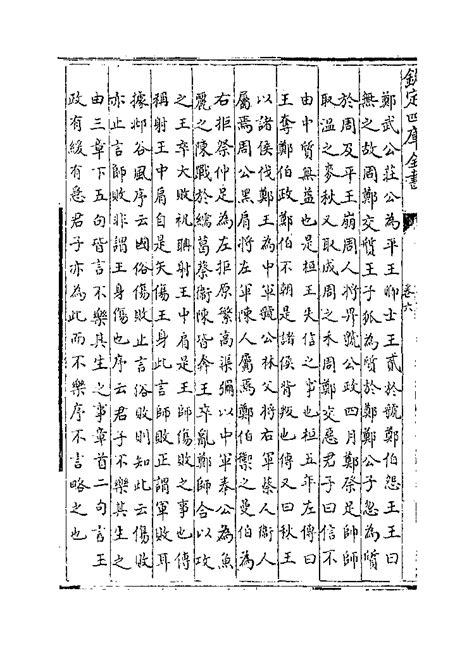 欽定四庫全書
卷六
鄭武公莊公為平王卿士王貳於虢鄭伯怨王王曰
無之故周鄭交質王子狐為質於鄭鄭公子忽為質
於周及平王崩周人將畀虢公政四月鄭祭足帥師
取溫之麥秋又取成周之禾周鄭交惡君子曰信不
由中質無益也是桓王失信之事也桓五年左傳曰
王奪鄭伯政鄭伯不朝是諸侯背叛也傳又曰秋王
以諸侯伐鄭王為中軍虢公林父將右軍蔡人衞人
屬焉周公黑肩將左軍陳人屬焉鄭伯禦之曼伯為
右拒祭仲足為左拒原繁髙渠彌以中軍奉公為魚
麗之陳戰於繻葛蔡衞陳皆奔王卒亂鄭師合以攻
之王卒大敗祝聃射王中肩是王師傷敗之事也傳
稱射王中肩自是矢傷王身此言師敗正謂軍敗耳
據邶谷風序云國俗傷敗止言俗敗則知此云傷敗
亦止言師敗非謂王身傷也序云君子不樂其生之
由三章下五句皆言不樂其生之事章首二句言王
政有緩有急君子亦為此而不樂序不言略之也